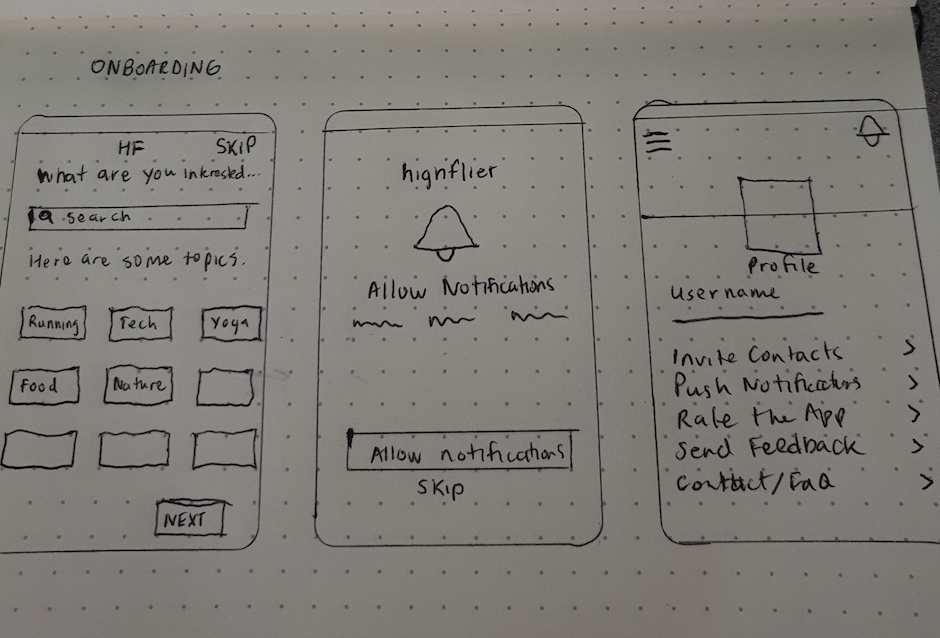 ONBOARDING
HF SKIP
What are you interested...
search
Here are some topics.
Running Tech Yoga
Food Nature
NEXT
highflier
Allow Notifications
Allow notifications
SKIP
Profile
username
Invite Contacts >
Push Notifications >
Rate the App >
Send Feedback >
Contact/FaQ >